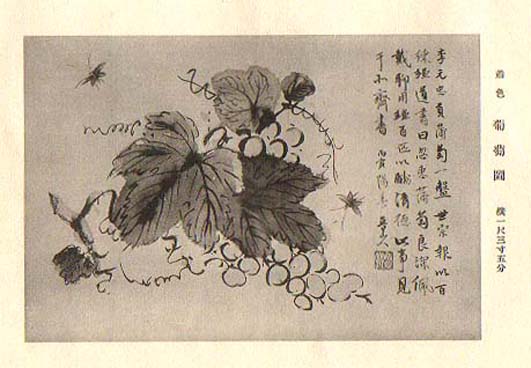 着色 葡萄圖 横一尺三寸五分
李元忠貢蒲萄一盤世宗報以百
練縑遺書曰忽惠蒲萄良深佩
戴聊用絹百匹以酬清德此事見
于北齊書 丙寅陽春